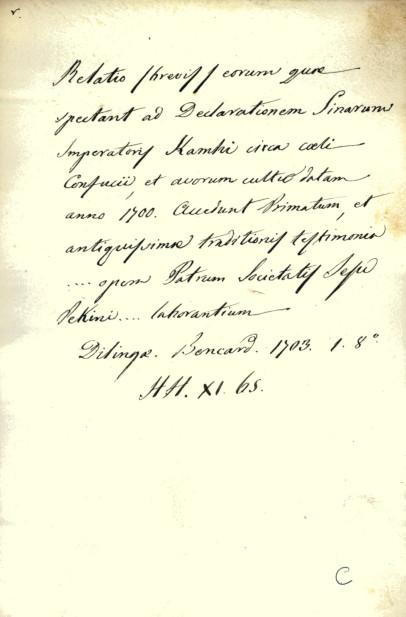 v.
Relatio (brevis) eorum quæ
spectant ad Declarationem Sinarum
Imperatoris Kamhi circa cœli
Confucii, et avorum cultū datam
anno 1700. Accedunt Primatum, et
antiquissimæ traditionis testimonia
.... operâ Patrum Societatis Jesu
Pekini .... laborantium
Dilingæ. Bencard. 1703. 1. 8°
HH. XI. 65.
C